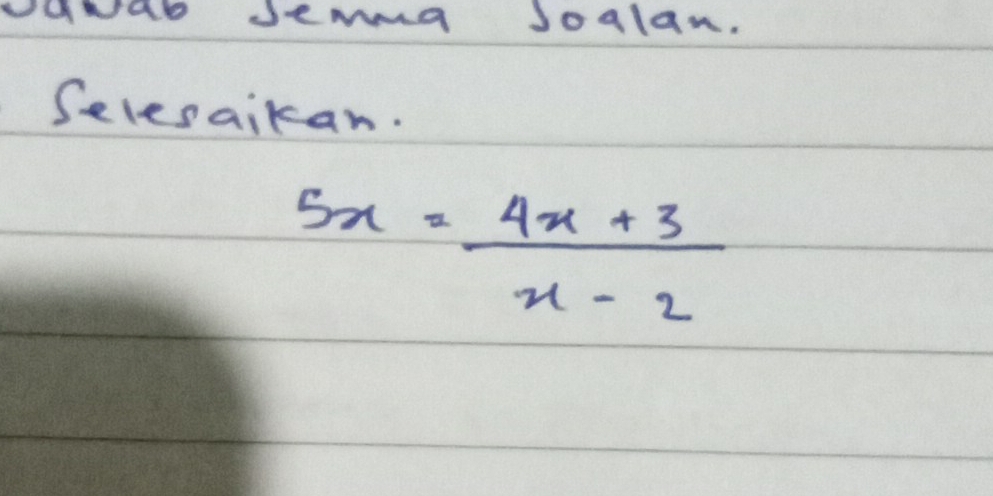 Jawab semua soalan.
Selesaikan.
5x = 4x + 3
x - 2